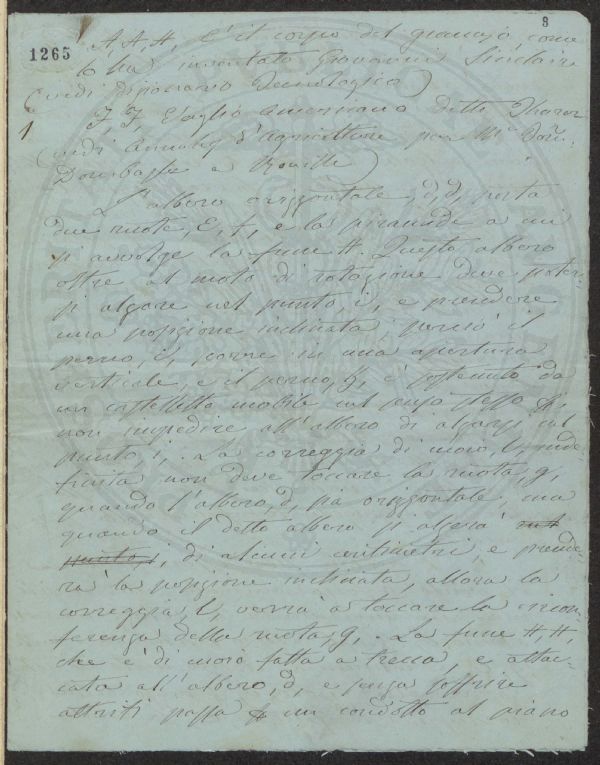 8
1265
A, A, A, è il corpo del granajo, come
lo ha inventato Giovanni Sinclair
(vedi Dizionario Tecnologico)
I, I, Vaglio americano detto Tharor
(vedi Annali d'agricoltura per Mr
Dombasle e
1
L'albero orizzontale, d, d, porta
due ruote, E, f, e la piramide a cui
si avvolge la fune H. Questo albero
oltre al moto di rotazione deve poter-
si alzare nel punto, i, e prendere
una posizione inclinata; perciò il
perno, i, scorre in una apertura
verticale, e il perno, g, è sostenuto da
un castelletto mobile sul perno stesso &
non impedire all'albero di alzarsi sul
punto, i,. La correggia di cuoio, l, inde-
finita non deve toccare la ruota, g,
quando l'albero, d, sia orizzontale, ma
quando il detto albero si alzerà sul
punto, i, di alcuni centimetri e prende-
rà la posizione inclinata, allora la
correggia, l, verrà a toccare la circon-
ferenza della ruota, g,. La fune H, H,
che è di cuoio fatta a trecca, e attac-
cata all'albero, d, e senza soffrire
attriti passa & un condotto al piano